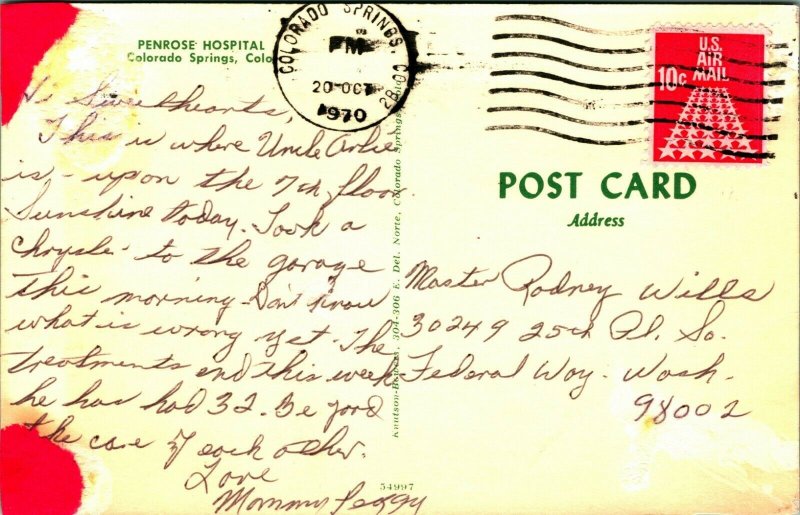 PENROSE HOSPITAL
Colorado Springs, Colo
Hi Sweethearts,
This is where Uncle Arlie
is - up on the 7th floor.
Sunshine today. Took a
Chrysler to the garage
this morning. Don't know
what is wrong yet. The
treatments end this week
he has had 32. Be good
& take care of each other.
Love
Mommy Peggy
COLORADO SPRINGS, COLO
PM
20 OCT
1970
U.S.
AIR
MAIL
10c
POST CARD
Address
Master Rodney Wills
30249 25th Pl. So.
Federal Way. Wash.
98002
304-306 E. Del Norte, Colorado Springs,
54997